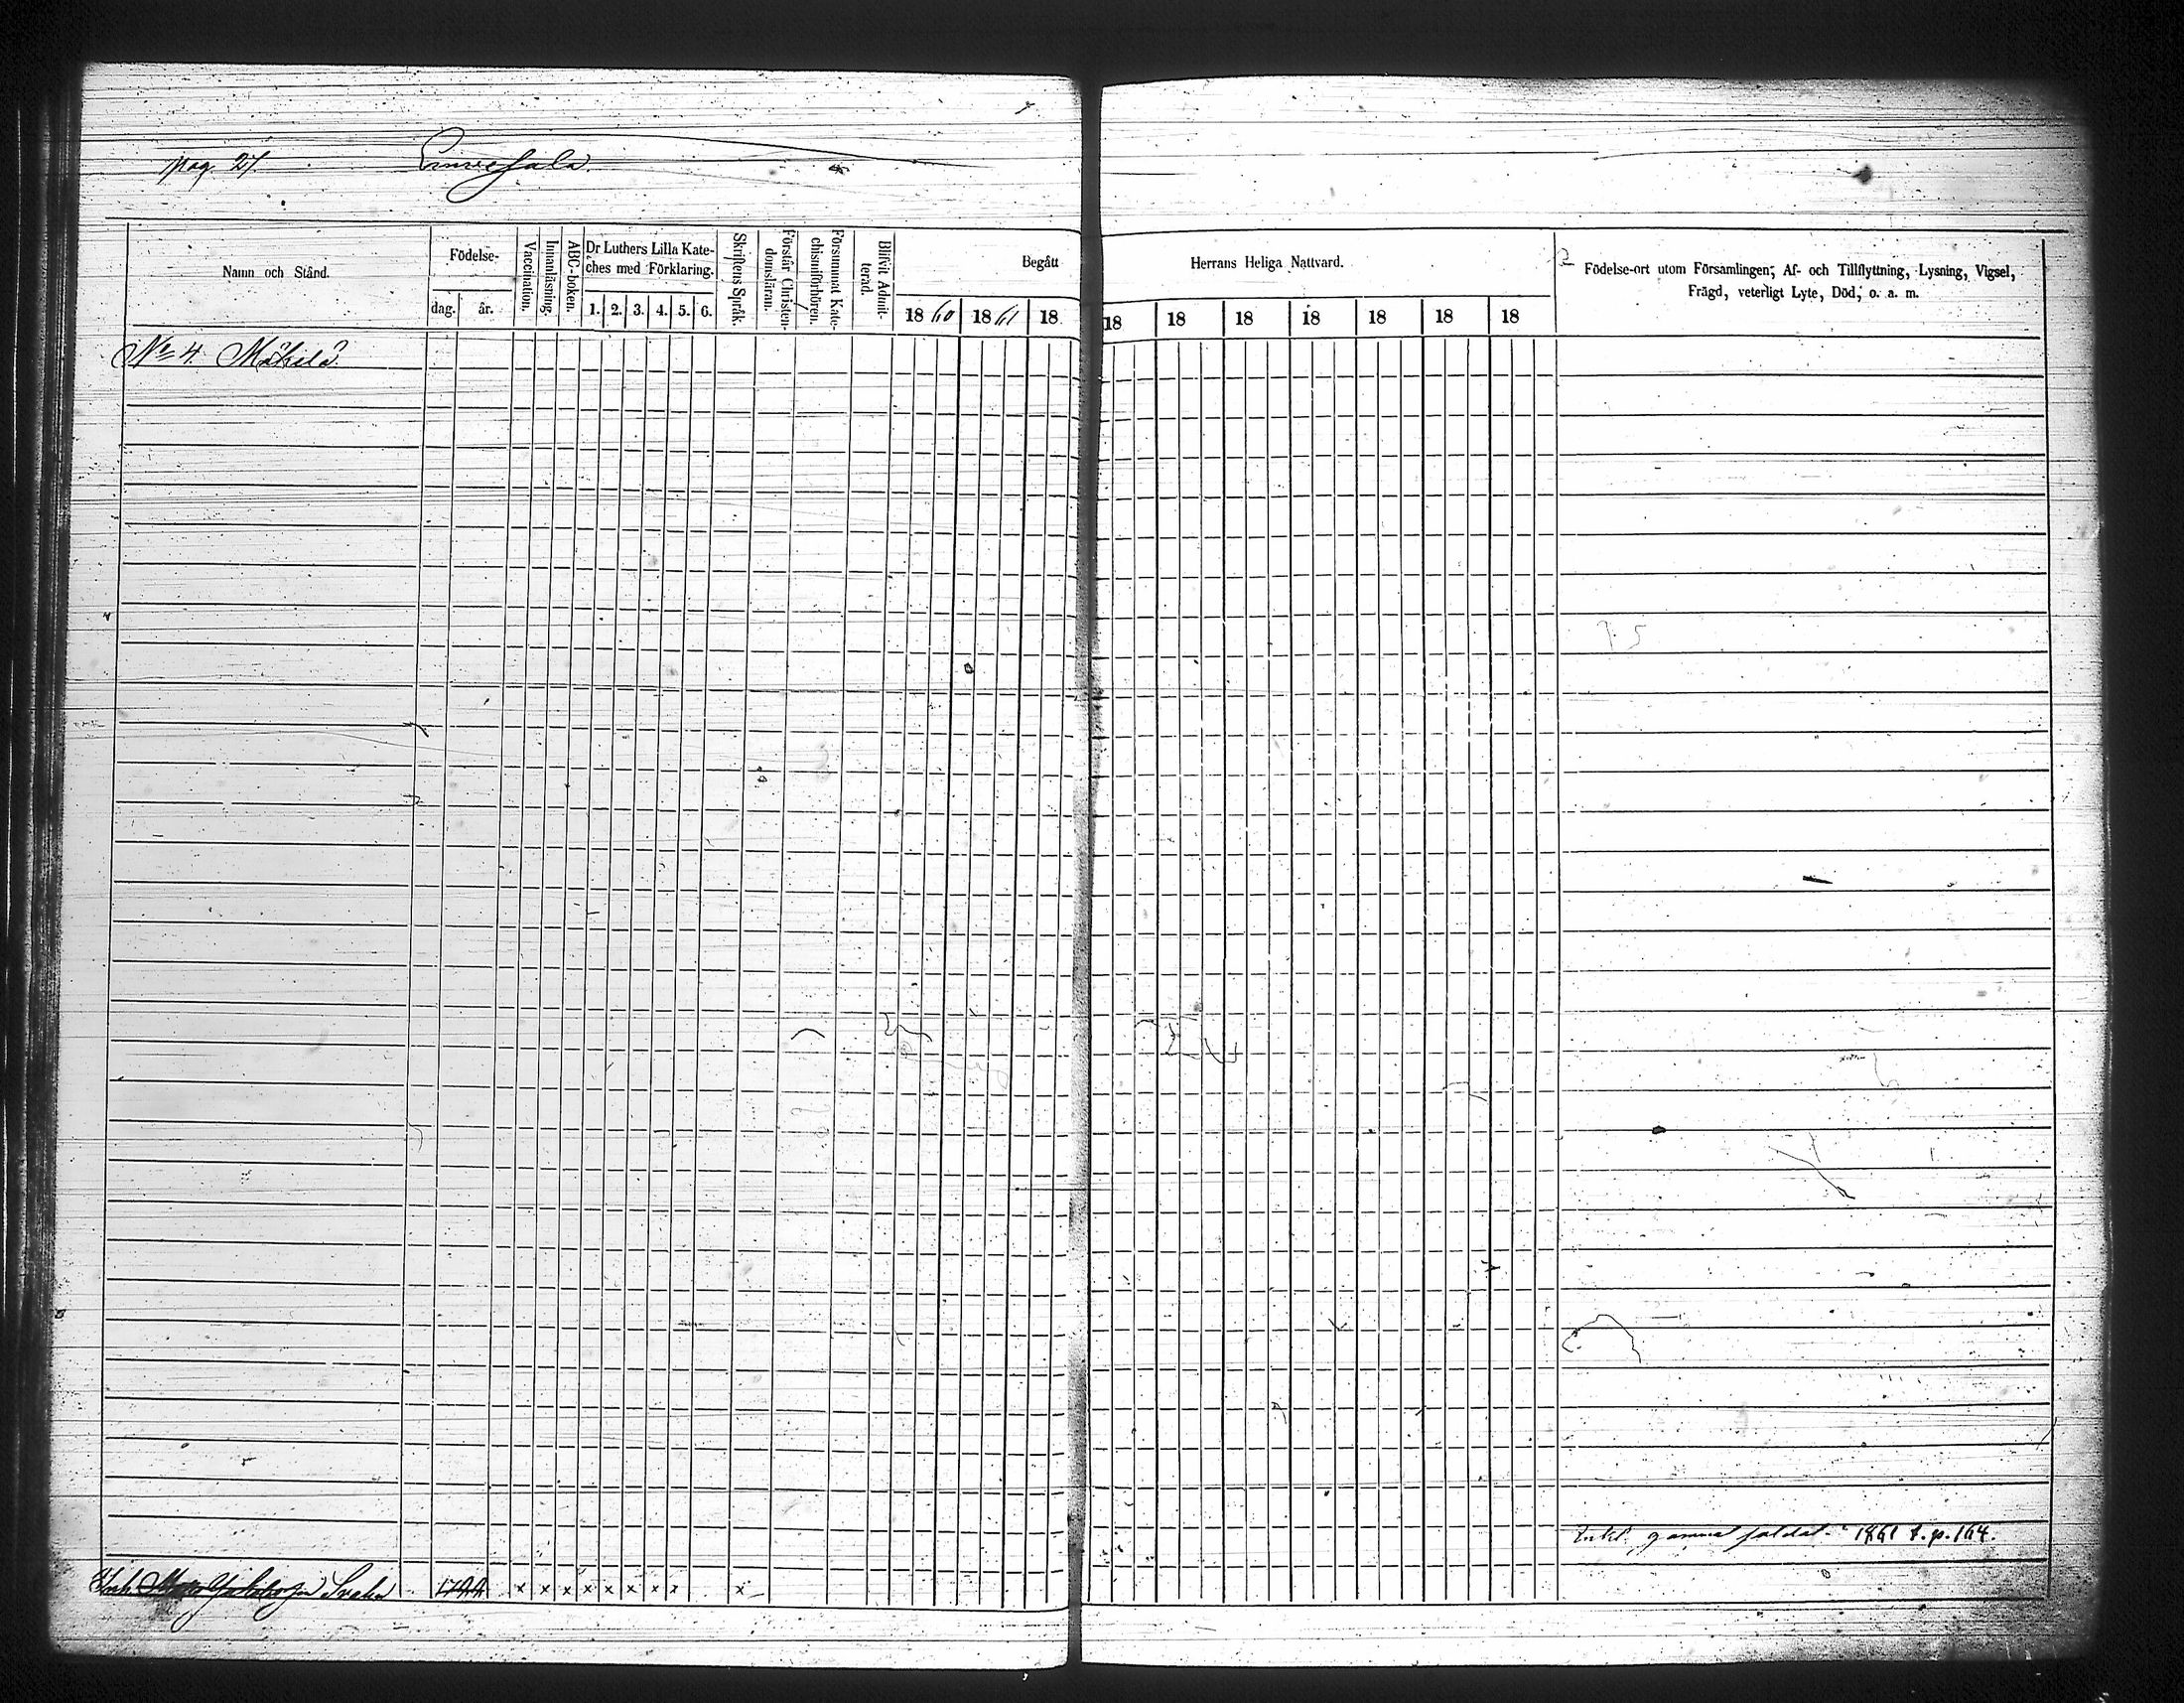 pag. 21.
Namn och Stånd.
Födelse-
dag.
år.
Vaccination.
Innanläsning.
ABC-boken.
Dr Luthers Lilla Kate-
ches med Förklaring.
1. 2. 3. 4. 5. 6.
Skriftens Språk.
Förstår Christen-
domsläran.
Försummat Kate-
chismiförhören.
Blifvit Admit-
terad.
Begått
1860 1861 18
Herrans Heliga Nattvard.
18 18 18 18 18 18 18
Födelse-ort utom Församlingen; Af- och Tillflyttning, Lysning, Vigsel,
Frägd, veterligt Lyte, Död, o. a. m.
No 4. Mäkelä
gamma soldat 1861 t. p. 164.
x x x x x x x x x